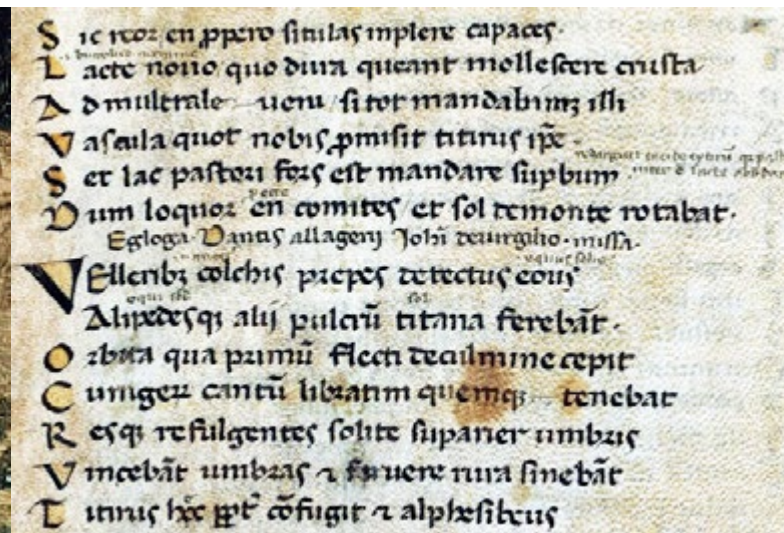 Sic reor en ꝓpero situlas inplere capaces.
Lacte nouo quo dura queant mollescere crusta
Ad multrale ueni si tot mandabimꝰ illi
Vascula quot nobis ꝓmisit titirus ip̄e.
Set lac pastori fors est mandare suꝑbum
Dum loquor en comites et sol de monte rotabat.
Egloga Dantis allagerij Johi de uirgilio missa.
Velleribꝫ colchis prepes detectus eous
Alipedesqꝫ alij pulcrū titana ferebāt.
Orbita qua primū flecti de culmine cepit
Currigerꝝ cantū libratim quemqꝫ tenebat
Resqꝫ refulgentes solite suꝑarier umbris
Vincebāt umbras ⁊ feruere rura sinebāt
Titirus hec ꝓpt̄ cōfugit ⁊ alphesibeus